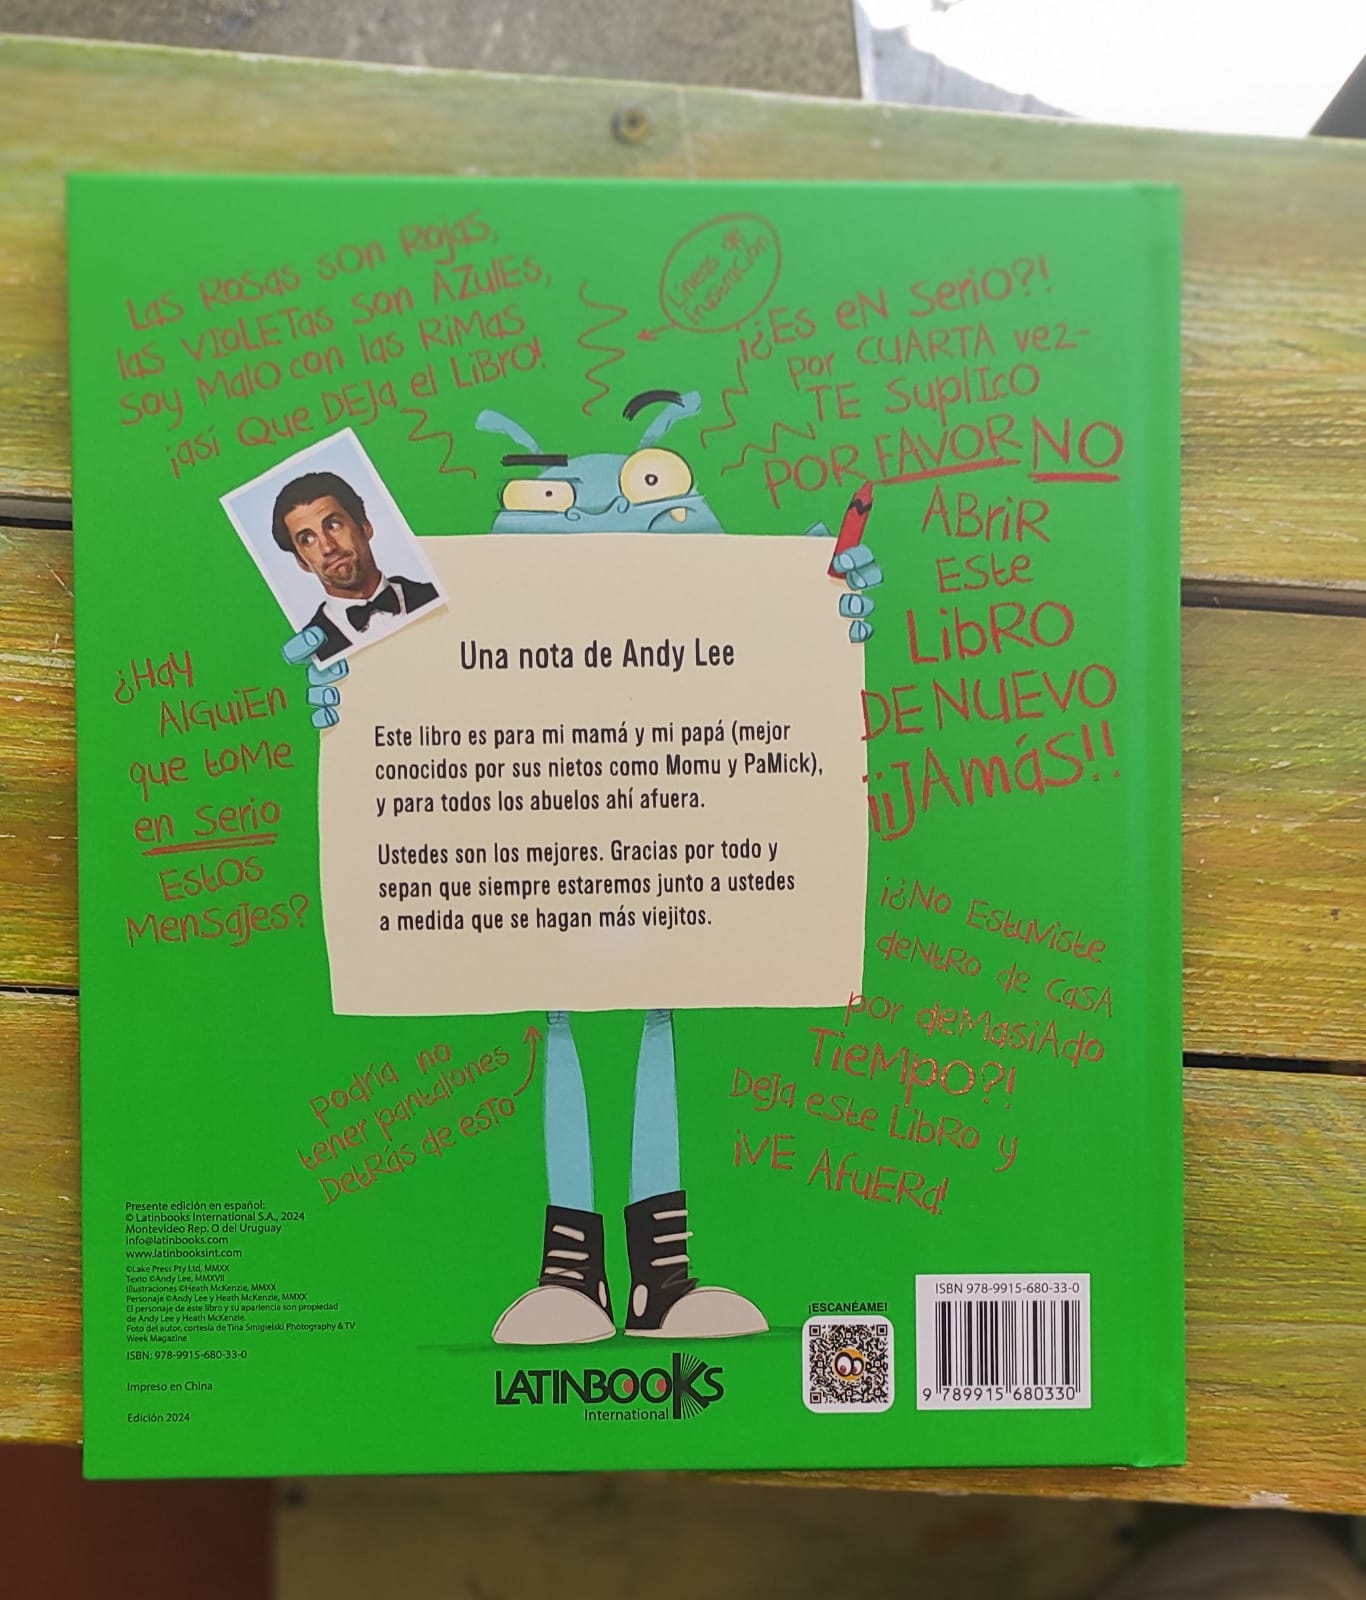 Las Rosas son Rojas,
las VIOLETas son AZulES,
soy MalO con las RiMas
¡así Que DEJa el LiBRO!
Lineas de
frustración
¡¿Es eN SeriO?!
Por CUARTA vez-
TE SuplIco
POR FAVOR NO
ABriR
ESte
LibRO
DE NUEVO
¡¡JAmáS!!
¿Hay
AlGuiEn
que toMe
en Serio
EStOS
MenSajes?
Una nota de Andy Lee
Este libro es para mi mamá y mi papá (mejor
conocidos por sus nietos como Momu y PaMick),
y para todos los abuelos ahí afuera.
Ustedes son los mejores. Gracias por todo y
sepan que siempre estaremos junto a ustedes
a medida que se hagan más viejitos.
¡¿No EstuViste
deNtRo de CaSA
por deMasiAdo
TieMpO?!
DeJa eSte LibRo y
¡VE AfuERa!
Podría no
tener pantalones
DetRás de esTo
Presente edición en español:
© Latinbooks International S.A., 2024
Montevideo Rep. O del Uruguay
Info@latinbooks.com
www.latinbooksint.com
©Lake Press Pty Ltd, MMXX
Texto ©Andy Lee, MMXVII
Illustraciones ©Heath McKenzie, MMXX
Personaje ©Andy Lee y Heath McKenzie, MMXX
El personaje de este libro y su apariencia son propiedad
de Andy Lee y Heath McKenzie.
Foto del autor, cortesía de Tina Smigielski Photography & TV
Week Magazine
ISBN: 978-9915-680-33-0
Impreso en China
Edición 2024
LATINBOOKS
International
¡ESCANÉAME!
ISBN 978-9915-680-33-0
9 789915 680330